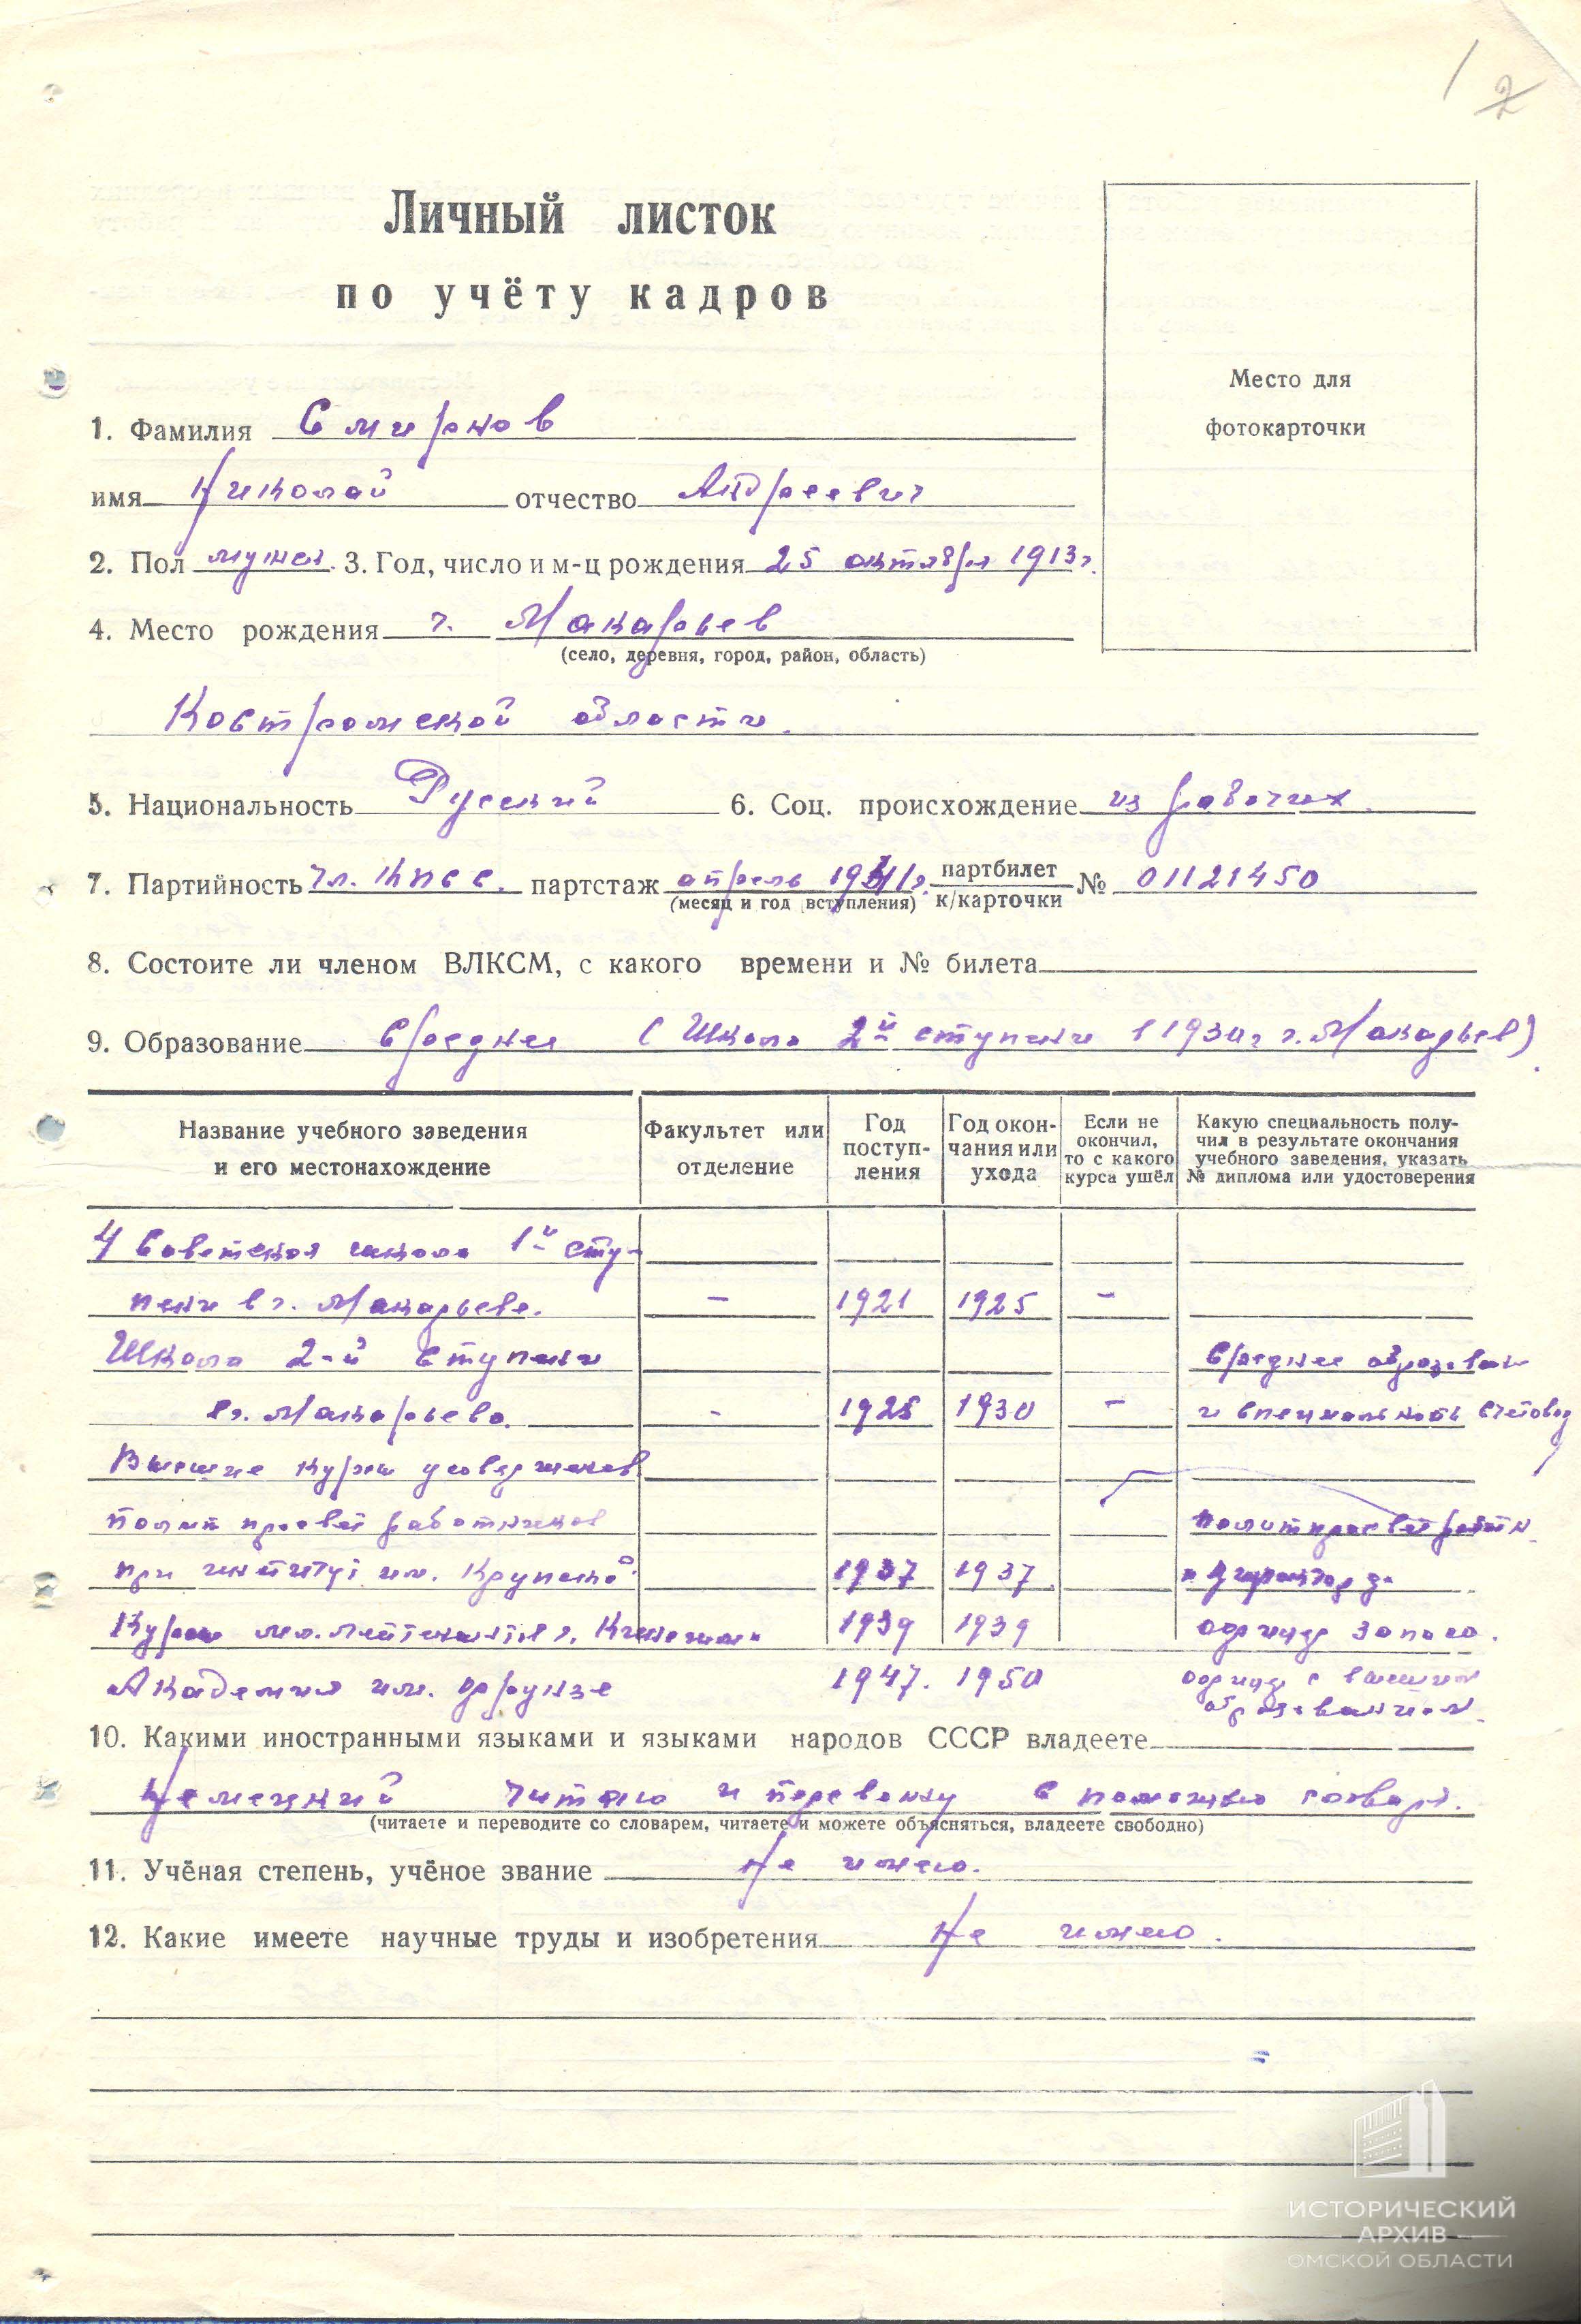 1 2
Личный листок
по учёту кадров
Место для
фотокарточки
1. Фамилия Смирнов
имя Николай отчество Андреевич
2. Пол мужск. 3. Год, число и м-ц рождения 25 октября 1913 г.
4. Место рождения г. Макарьев
(село, деревня, город, район, область)
Костромской области.
5. Национальность Русский 6. Соц. происхождение из рабочих.
7. Партийность чл. КПСС. партстаж апрель 1941 г. партбилет № 01121450
(месяц и год вступления) к/карточки
8. Состоите ли членом ВЛКСМ, с какого времени и № билета
9. Образование Среднее (Школа 2й ступени в 1930 г г. Макарьев)
Название учебного заведения и его местонахождение
Факультет или отделение
Год поступ-ления
Год окон-чания или ухода
Если не окончил, то с какого курса ушёл
Какую специальность полу-чил в результате окончания учебного заведения, указать № диплома или удостоверения
4 Советская школа 1й сту-
пени в г. Макарьеве. – 1921 1925 –
Школа 2-й ступени Среднее образован
в г. Макарьево. - 1925 1930 – и специальность счетовод
Высшие курсы усовершенств
полит просвет работников политпросвет работн
при институт им. Крупской 1937 1937
Курсы мл. лейтенантов г. Кинешма 1939 1939 офицер запаса.
Академия им. Фрунзе 1947. 1950 офицер с высшим
образованием
10. Какими иностранными языками и языками народов СССР владеете
Немецкий читаю и перевожу с помощью словаря.
(читаете и переводите со словарем, читаете и можете объясняться, владеете свободно)
11. Учёная степень, учёное звание Не имею.
12. Какие имеете научные труды и изобретения Не имею.
ИСТОРИЧЕСКИЙ
АРХИВ
ОМСКОЙ ОБЛАСТИ